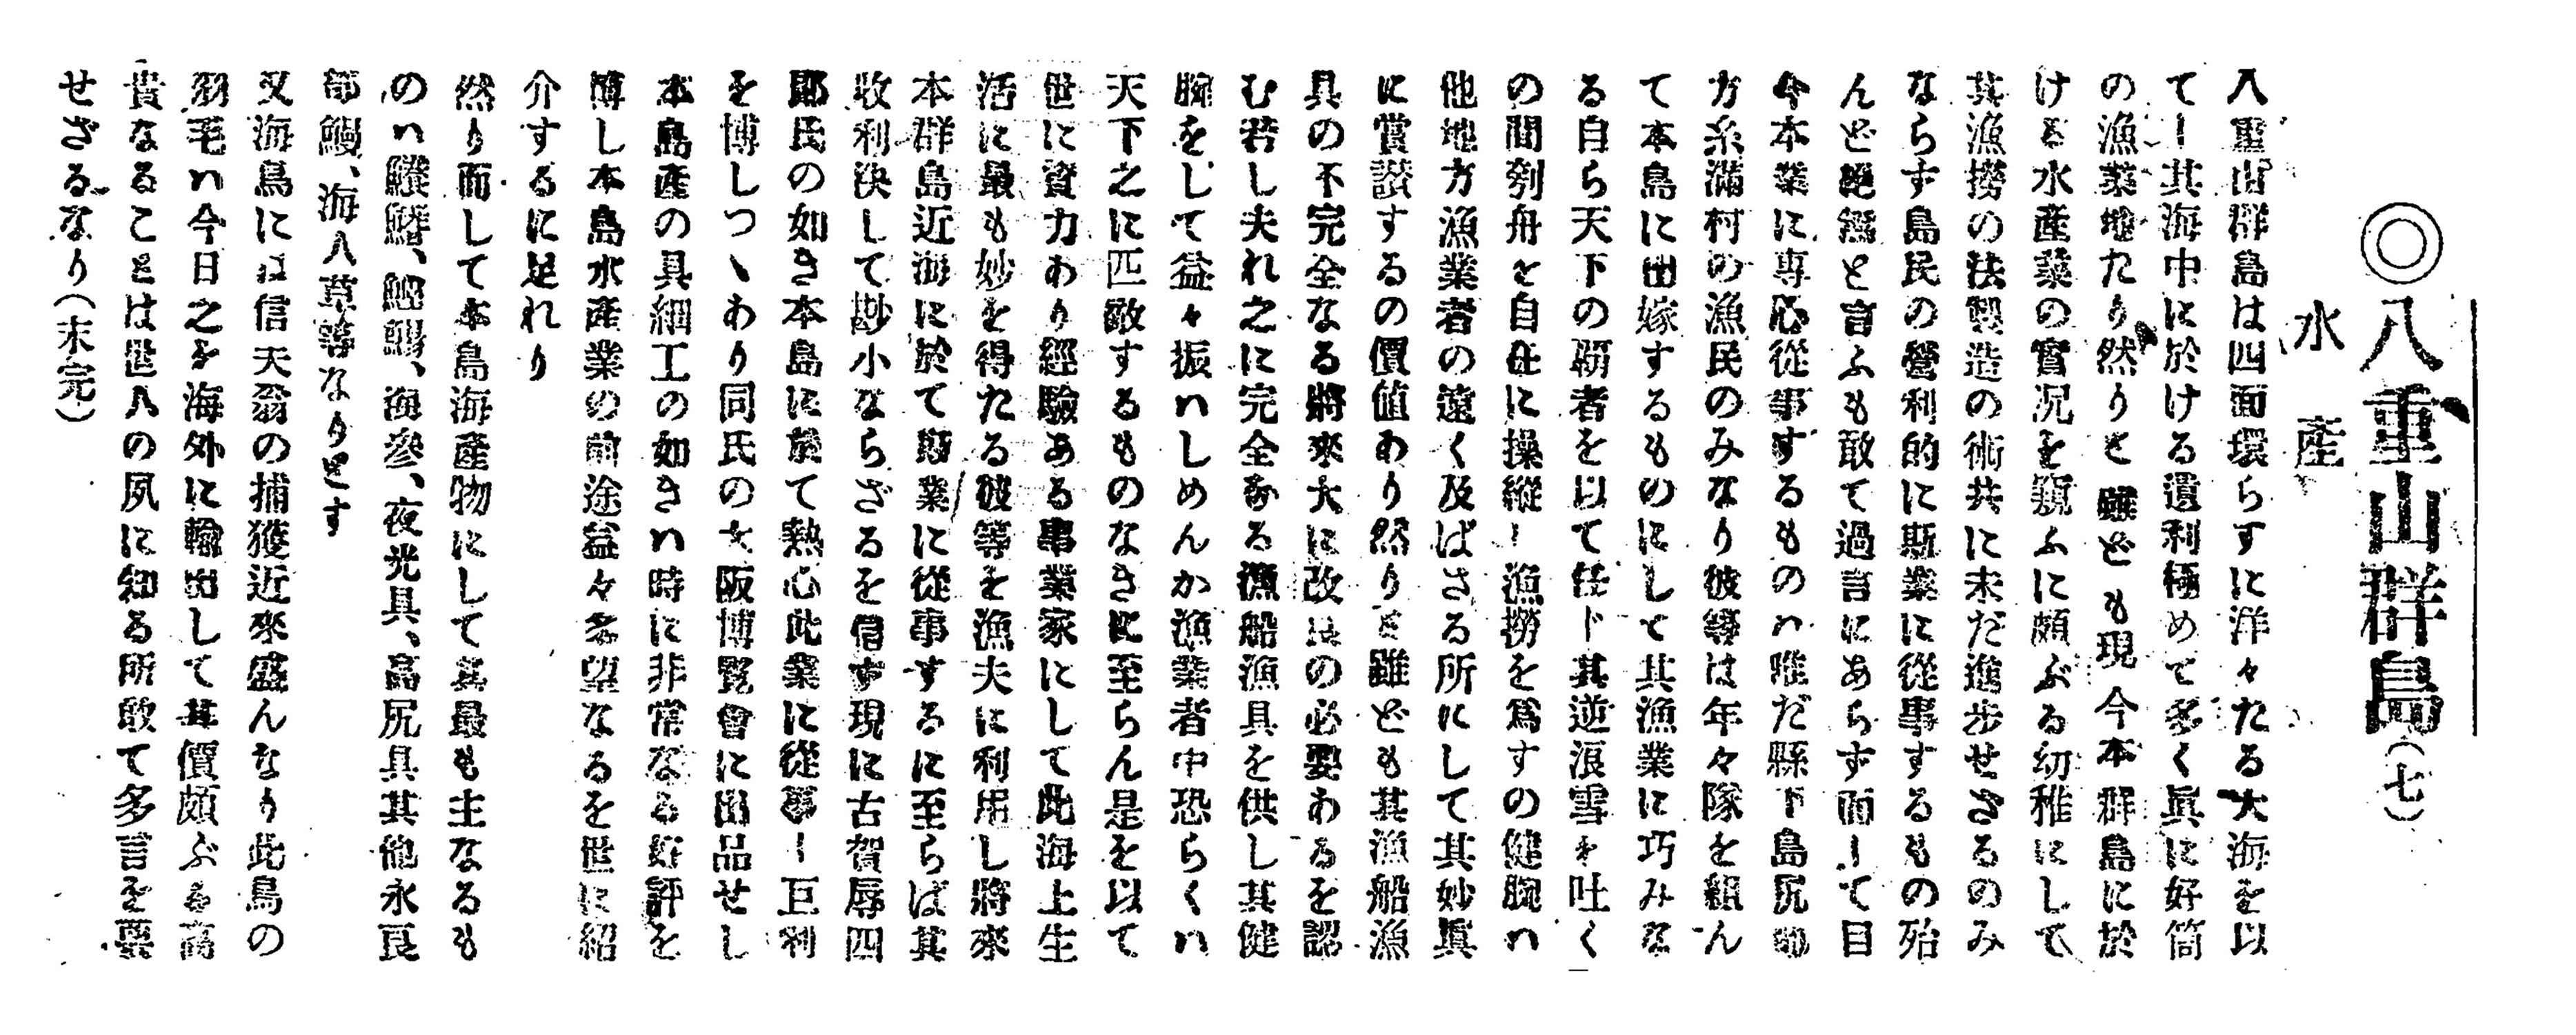 ◎八重山群島(七)
水產
八重山群島は四面環らすに洋々たる大海を以
てし其海中に於ける遺利極めて多く眞に好箇
の漁業地たり然りと雖ども現今本群島に於
ける水產業の實況を窺ふに頗ぶる幼稚にして
其漁撈の法製造の術共に未だ進步せざるのみ
ならす島民の營利的に斯業に從事するもの殆
んど絕無と言ふも敢て過言にあらず而して目
今本業に專心從事するものハ唯だ縣下島尻地
方糸滿村の漁民のみなり彼等は年々隊を組ん
て本島に出嫁するものにして其漁業に巧みな
る自ら天下の覇者を以て任ド其逆浪雪を吐く
の間刳舟を自在に操縱し漁撈を爲すの健腕ハ
他地方漁業者の遠く及ばさる所にして其妙眞
に賞讃するの價値あり然りと雖ども其漁船漁
具の不完全なる將來大に改良の必要あるを認
む若し夫れ之に完全なる漁船漁具を供し其健
腕をして益々振ハしめんか漁業者中恐らくハ
天下之に匹敵するものなきに至らん是を以て
世に資力あり經驗ある事業家にして此海上生
活に最も妙を得たる彼等を漁夫に利用し將來
本群島近海に於て斯業に從事するに至らば其
收利決して尠小ならざるを信ず現に古賀辰四
郞氏の如き本島に於て熱心此業に從事し巨利
を博しつゝあり同氏の大阪博覽會に出品せし
本島產の具細工の如きハ時に非常なる好評を
博し本島水產業の前途益々多望なるを世に紹
介するに足れり
然り而して本島海產物にして其最も主なるも
のハ鱶鰭、鰹節、海參、夜光具、高尻具其他永良
部鰻、海人草等なりとす
又海鳥には信天翁の捕獲近來盛んなり此鳥の
羽毛ハ今日之を海外に輸出して其價頗ぶる高
貴なることは世人の夙に知る所敢て多言を要
せざるなり(未完)